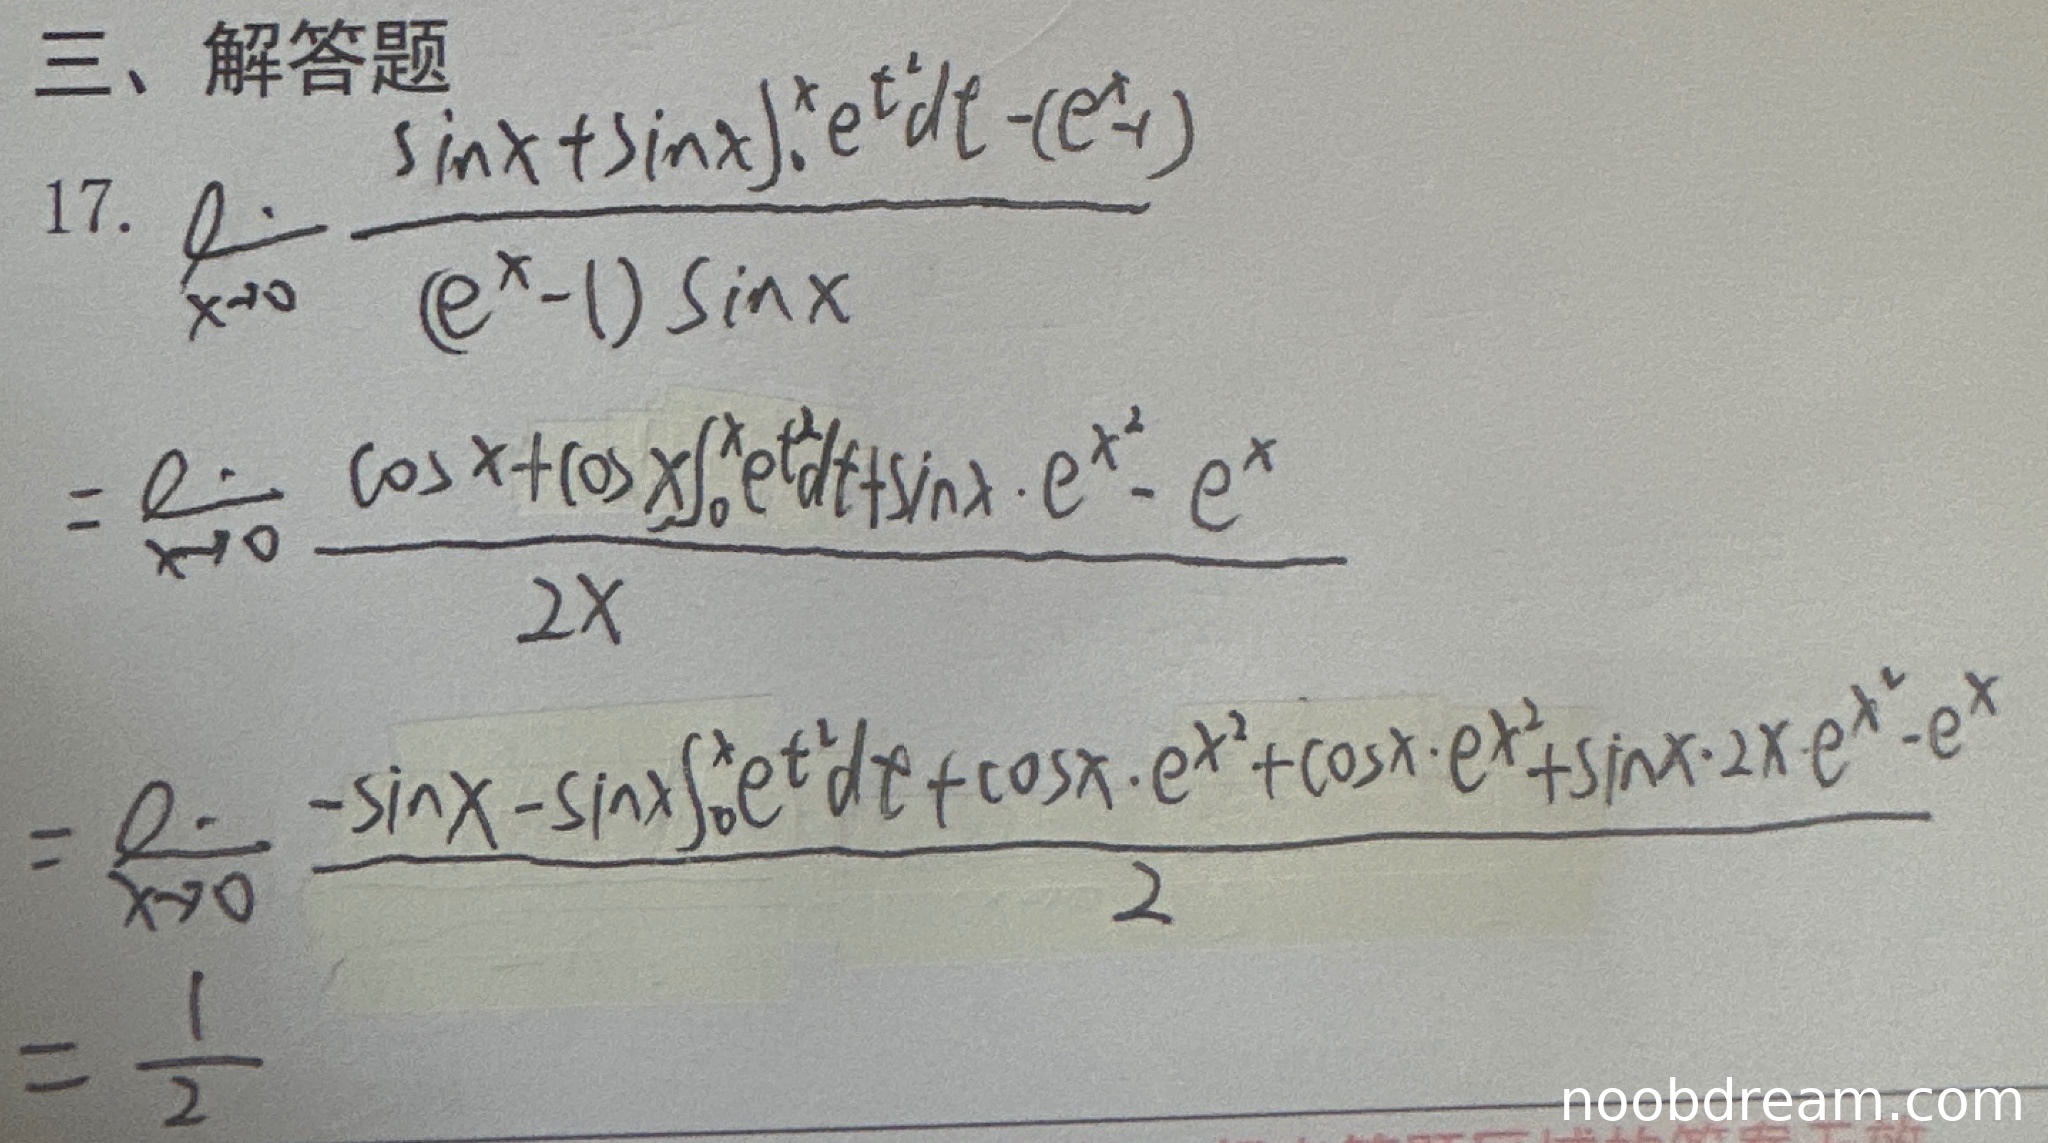 三、解答题
17. lim x→0 (sinx+sinx∫₀ˣe^{t²}dt-(eˣ-1)) / ((eˣ-1)sinx)
= lim x→0 (cosx+cosx∫₀ˣe^{t²}dt+sinx·e^{x²}-eˣ) / (2x)
= lim x→0 (-sinx-sinx∫₀ˣe^{t²}dt+cosx·e^{x²}+cosx·e^{x²}+sinx·2x·e^{x²}-eˣ) / 2
= 1/2
noobdream.com